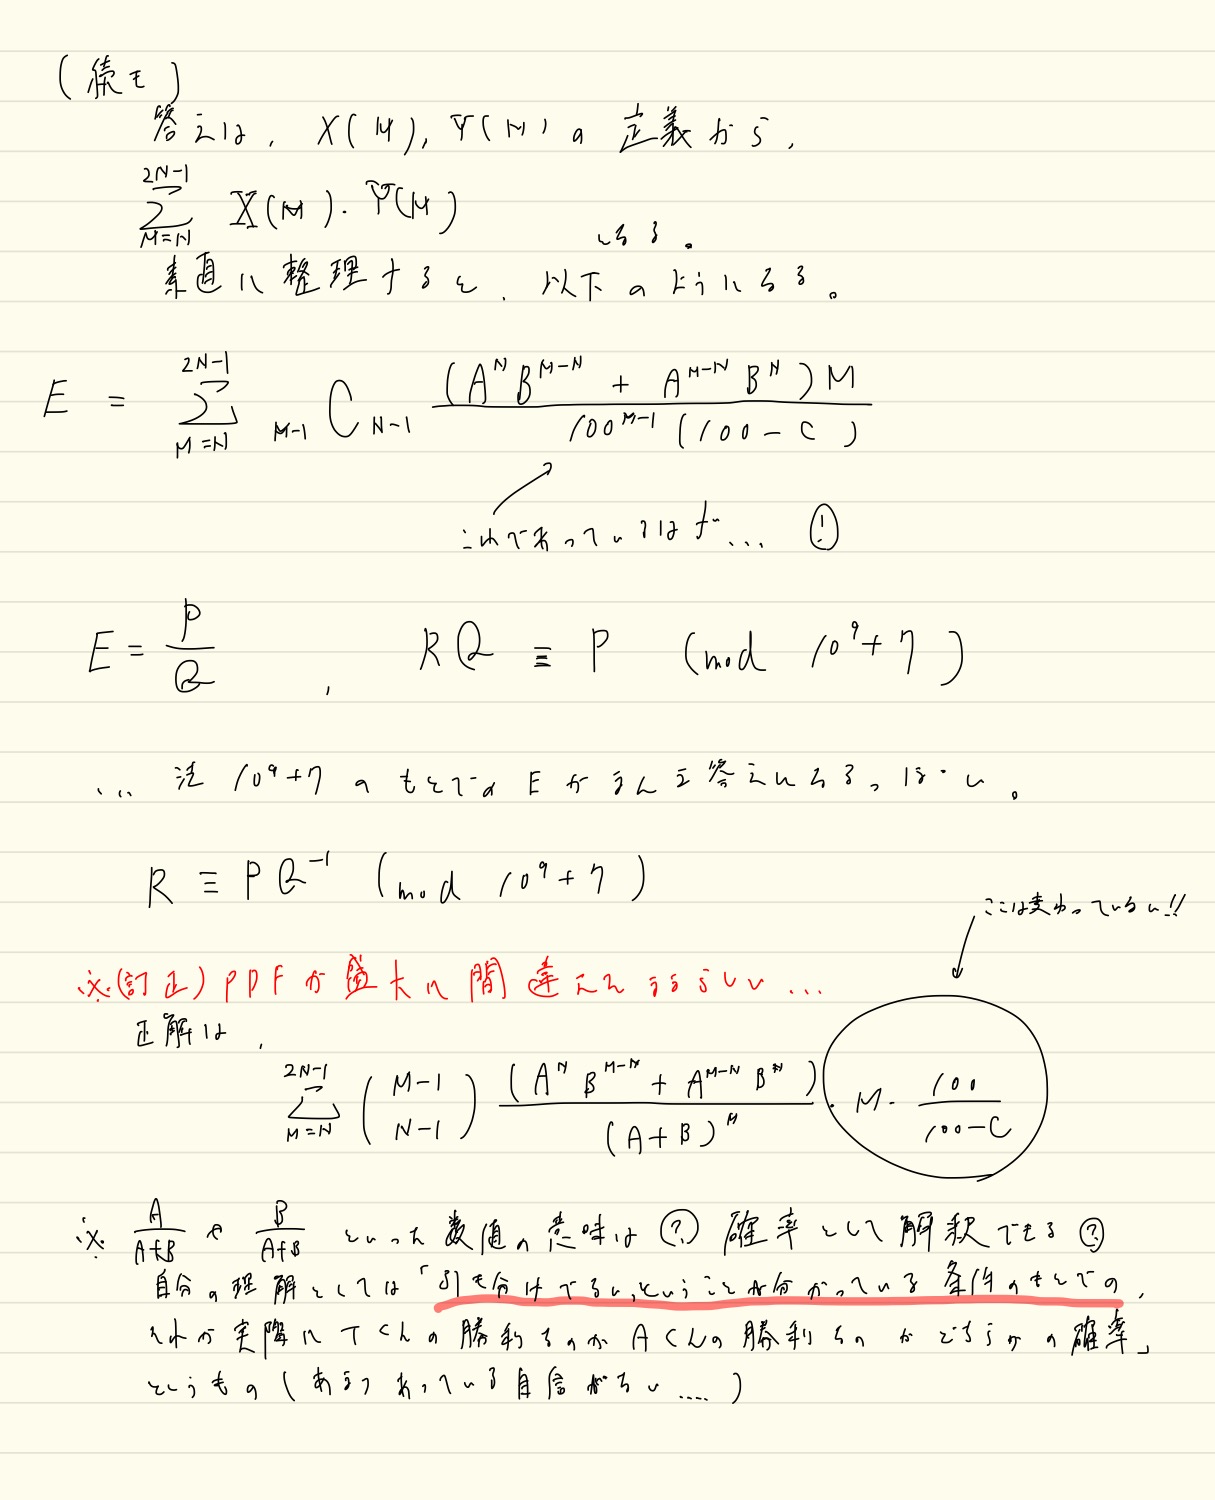 (続き)
答えは, X(M), Y(M) の 定義から,
\sum_{M=N}^{2N-1} X(M)・Y(M)
となる。
素直に整理すると, 以下のようになる。
E = \sum_{M=N}^{2N-1} {}_{M-1}C_{N-1} \frac{(A^N B^{M-N} + A^{M-N} B^N)M}{100^{M-1}(100-C)}
これであっているはず… !
E = \frac{P}{Q}, RQ ≡ P (mod 10^9+7)
… 法 10^9+7 のもとでの E がそんま答えになるっぽい。
R ≡ PQ^{-1} (mod 10^9+7)
ここは変わっていない!!
※(訂正) PDFが盛大に間違えてるらしい…
正解は,
\sum_{M=N}^{2N-1} \binom{M-1}{N-1} \frac{(A^N B^{M-N} + A^{M-N} B^N)}{(A+B)^M} ・ M・\frac{100}{100-C}
※ \frac{A}{A+B} や \frac{B}{A+B} といった数値の意味は ? 確率として解釈できる ?
自分の理解としては「引き分けでないということが分かっている条件のもとでの,
それが実際にTくんの勝利なのかAくんの勝利なのかどちらかの確率」
というもの (あまりあっている自信がない….)